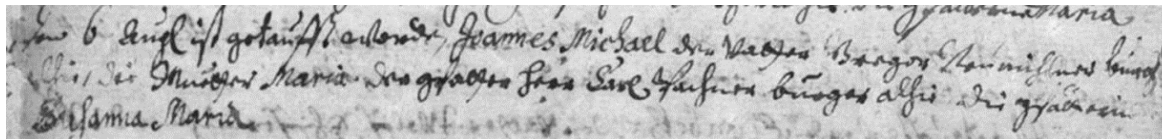 Maria
den 6 Augl ist getaufft worde, Joannes Michael der Vatter Gregor burger
alhie, die Muetter Maria der gfatter herr Carl burger alhie die gfatterin
Susanna Maria